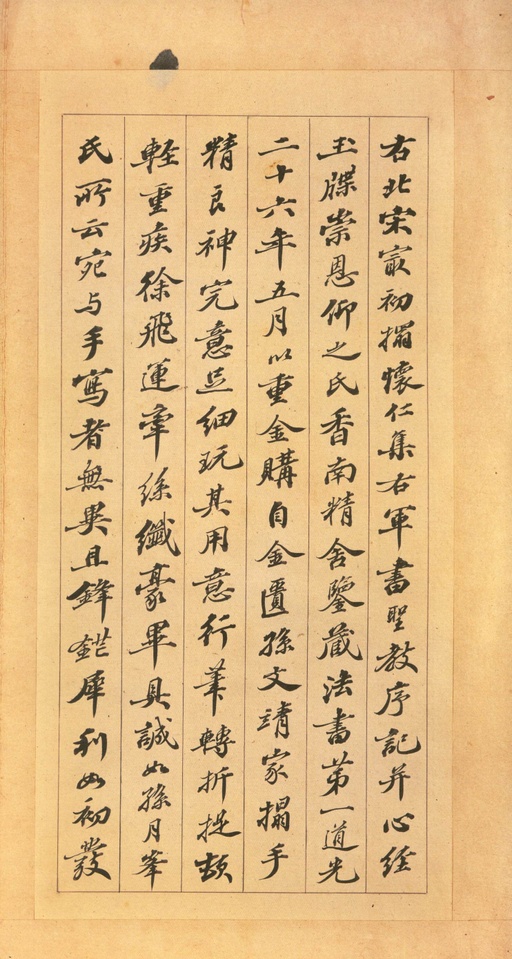 右北宋㝡初搨懷仁集右軍書聖教序記并心經
玉牒崇恩仰之氏香南精舍鑒藏法書第一道光
二十六年五月以重金購自金匱孫文靖家搨手
精良神完意足細玩其用意行筆轉折提頓
輕重疾徐飛運牽絲纖豪畢具誠如孫月峯
氏所云宛与手寫者無異且鋒鋩犀利如初發